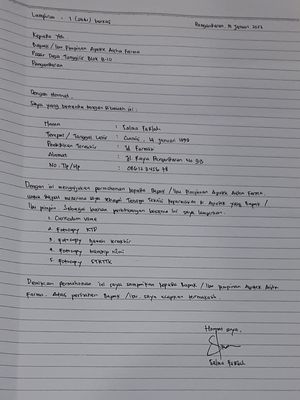 Lampiran : 1 (satu) berkas
Pangandaran, 14 Januari 2022
Kepada Yth
Bapak / Ibu Pimpinan Apotek Aisha Farma
Pasar Desa Blok B-10
Pangandaran
Dengan Hormat.
Saya yang bertanda tangan dibawah ini :
Nama : Salma
Tempat / Tanggal Lahir : Ciamis, 14 Januari
Pendidikan Terakhir : D3 Farmasi
Alamat : Jl. Raya Pangandaran No
NO. Tlp/Hp :
Dengan ini mengajukan permohonan kepada Bapak / Ibu Pimpinan Apotek Aisha Farma.
Untuk dapat Tenaga Teknis Kefarmasian di Apotek yang Bapak /
Ibu pimpin. Sebagai bahan pertimbangan bersama ini saya lampirkan :
1. Curriculum Vitae
2. Fotocopy KTP
3. Fotocopy Ijazah terakhir
4. Fotocopy transkip nilai
5. Fotocopy STRTTK
Demikian permohonan ini saya sampaikan kepada Bapak / Ibu Pimpinan Apotek Aisha
Farma. Atas perhatian Bapak / Ibu, saya ucapkan terimakasih.
Hormat saya.
Salma